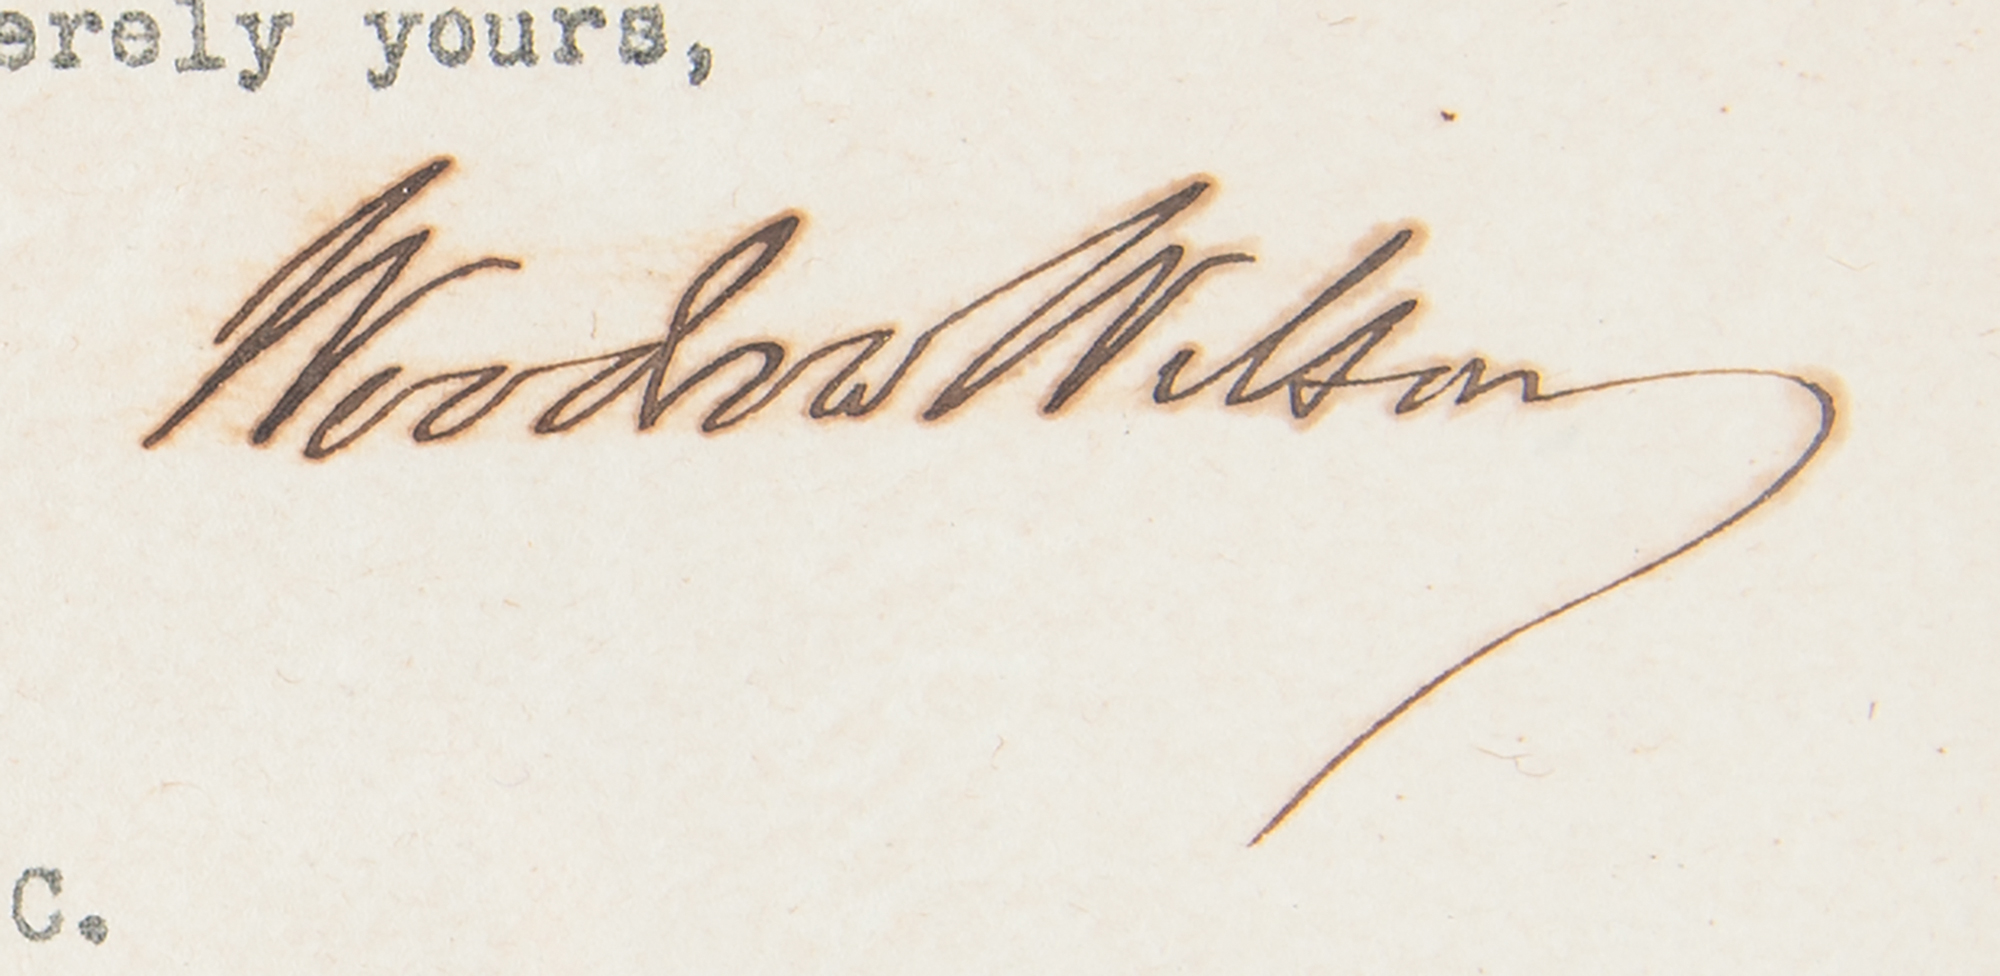 erely yours,
Woodrow Wilson
C.